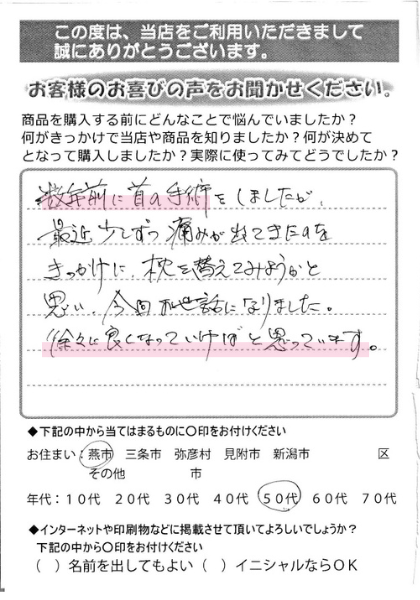 この度は、当店をご利用いただきまして
誠にありがとうございます。
お客様のお喜びの声をお聞かせください。
商品を購入する前にどんなことで悩んでいましたか？
何がきっかけで当店や商品を知りましたか？何が決めて
となって購入しましたか？実際に使ってみてどうでしたか？
数年前に首の手術をしましたが、
最近少しずつ痛みが出てきたのを
きっかけに、枕を替えてみようかと
思い、今回お世話になりました。
徐々に良くなっていけばと思っています。
◆下記の中から当てはまるものに〇印をお付けください
お住まい：燕市 三条市 弥彦村 見附市 新潟市 区
その他 市
年代：１０代 ２０代 ３０代 ４０代 ５０代 ６０代 ７０代
◆インターネットや印刷物などに掲載させて頂いてよろしいでしょうか？
下記の中から〇印をお付けください
（ ）名前を出してもよい（ ）イニシャルならＯＫ